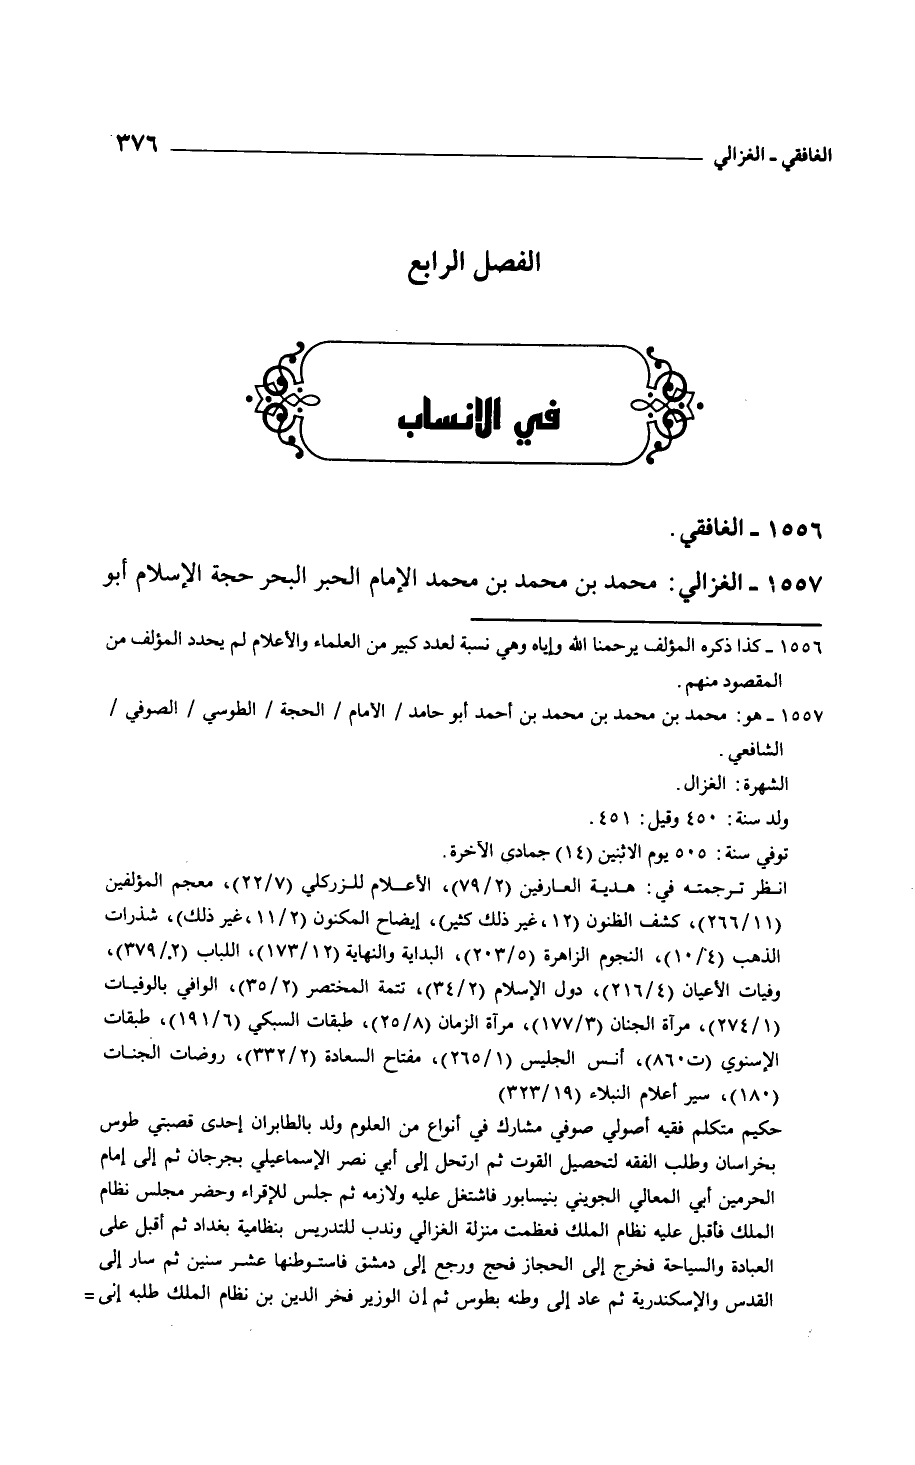 الغافقي - الغزالي ٣٧٦
الفصل الرابع
في الانساب
١٥٥٦ - الغافقي .
١٥٥٧ - الغزالي : محمد بن محمد بن محمد الإمام الحبر البحر حجة الإسلام أبو
١٥٥٦ - كذا ذكره المؤلف يرحمنا الله وإياه وهي نسبة لعدد كبير من العلماء والأعلام لم يحدد المؤلف من
المقصود منهم .
١٥٥٧ - هو : محمد بن محمد بن محمد بن أحمد أبو حامد / الأمام / الحجة / الطوسي / الصوفي /
الشافعي .
الشهرة : الغزال .
ولد سنة : ٤٥٠ وقيل : ٤٥١ .
توفي سنة : ٥٠٥ يوم الاثنين (١٤) جمادى الآخرة .
انظر ترجمته في : هدية العارفين (٧٩/٢)، الأعلام للزركلي (٢٢/٧)، معجم المؤلفين
(٢٦٦/١١)، كشف الظنون (١٢، غير ذلك كثير)، إيضاح المكنون (١١/٢، غير ذلك)، شذرات
الذهب (١٠/٤)، النجوم الزاهرة (٢٠٣/٥)، البداية والنهاية (١٧٣/١٢)، اللباب (٣٧٩/٢)،
وفيات الأعيان (٢١٦/٤)، دول الإسلام (٣٤/٢)، تتمة المختصر (٣٥/٢)، الوافي بالوفيات
(٢٧٤/١)، مرآة الجنان (١٧٧/٣)، مرآة الزمان (٢٥/٨)، طبقات السبكي (١٩١/٦)، طبقات
الإسنوي (ت٨٦٠)، أنس الجليس (٢٦٥/١)، مفتاح السعادة (٣٣٢/٢)، روضات الجنات
(١٨٠)، سير أعلام النبلاء (٣٢٣/١٩)
حكيم متكلم فقيه أصولي صوفي مشارك في أنواع من العلوم ولد بالطابران إحدى قصبتي طوس
بخراسان وطلب الفقه لتحصيل القوت ثم ارتحل إلى أبي نصر الإسماعيلي بجرجان ثم إلى إمام
الحرمين أبي المعالي الجويني بنيسابور فاشتغل عليه ولازمه ثم جلس للإقراء وحضر مجلس نظام
الملك فأقبل عليه نظام الملك فعظمت منزلة الغزالي وندب للتدريس بنظامية بغداد ثم أقبل على
العبادة والسياحة فخرج إلى الحجاز فحج ورجع إلى دمشق فاستوطنها عشر سنين ثم سار إلى
القدس والإسكندرية ثم عاد إلى وطنه بطوس ثم إن الوزير فخر الدين بن نظام الملك طلبه إلى =